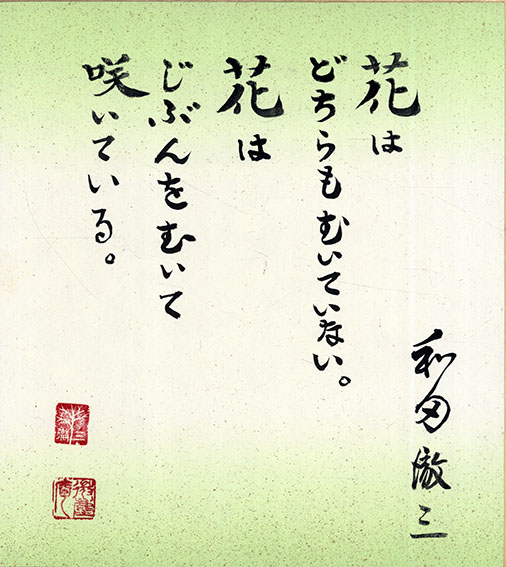 花は
どちらもむいていない。
花は
じぶんをむいて
咲いている。
和田徹三